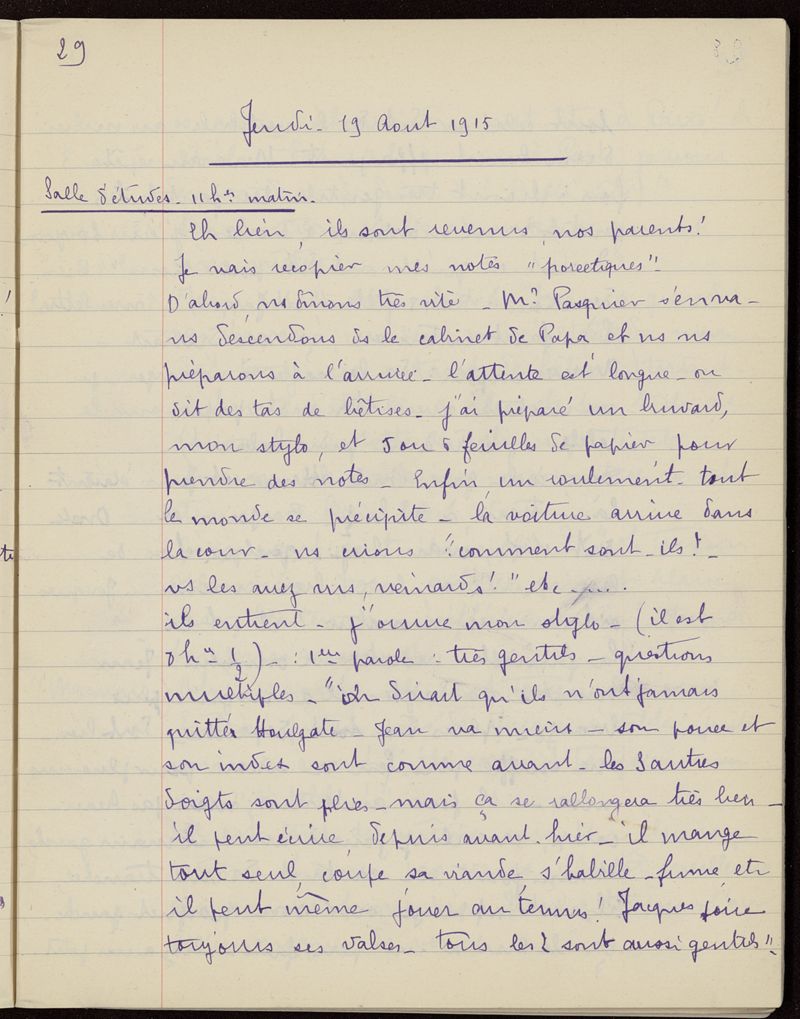 29
Jeudi - 19 Aout 1915
Salle d'études - 11 hes matin -
Eh bien, ils sont revenus, nos parents!
Je vais recopier mes notes
D'abord, ns dînons très vite - Mr Pasquier s'en va -
ns descendons ds le cabinet de Papa et ns ns
préparons à l'arrivée - l'attente est longue - on
dit des tas de bêtises - j'ai préparé un buvard,
mon stylo, et 5 ou 6 feuilles de papier pour
prendre des notes - Enfin, un roulement - tout
le monde se précipite - la voiture arrive dans
la cour - ns crions "comment sont-ils! -
vs les avez vus, veinards!" etc ....
ils entrent - j'ouvre mon stylo - (il est
8 hes 1/2) - : 1ère parole : très gentils - questions
multiples - "on dirait qu'ils n'ont jamais
quitté Houlgate - Jean va mieux - son pouce et
son index sont comme avant - les 3 autres
doigts sont pliés - mais ça se rallongera très bien -
il peut écrire, depuis avant-hier - il mange
tout seul, coupe sa viande, s'habille - fume, etc
il peut même jouer au tennis! Jacques joue
toujours ses valses - tous les 2 sont aussi gentils"